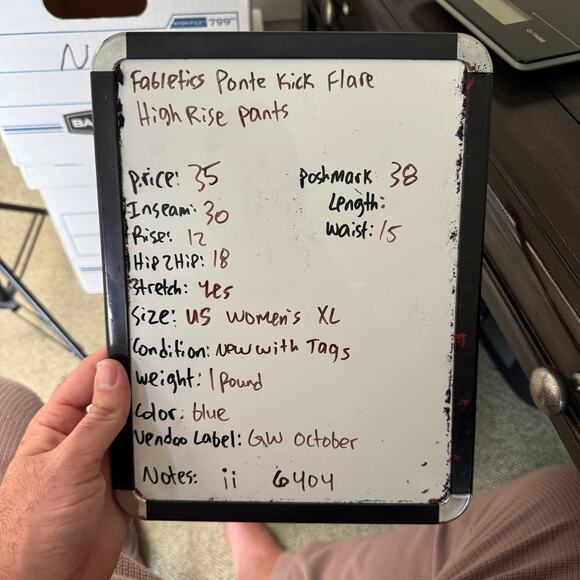 Fabletics Ponte Kick Flare
High Rise pants
price: 35
Poshmark 38
Inseam: 30
Length:
Rise: 12
Waist: 15
Hip 2 Hip: 18
Stretch: yes
Size: US Women's XL
Condition: New with Tags
Weight: 1 Pound
Color: blue
Vendoo Label: GW October
Notes: ii 6404
799
N
BA
OZ/TARE